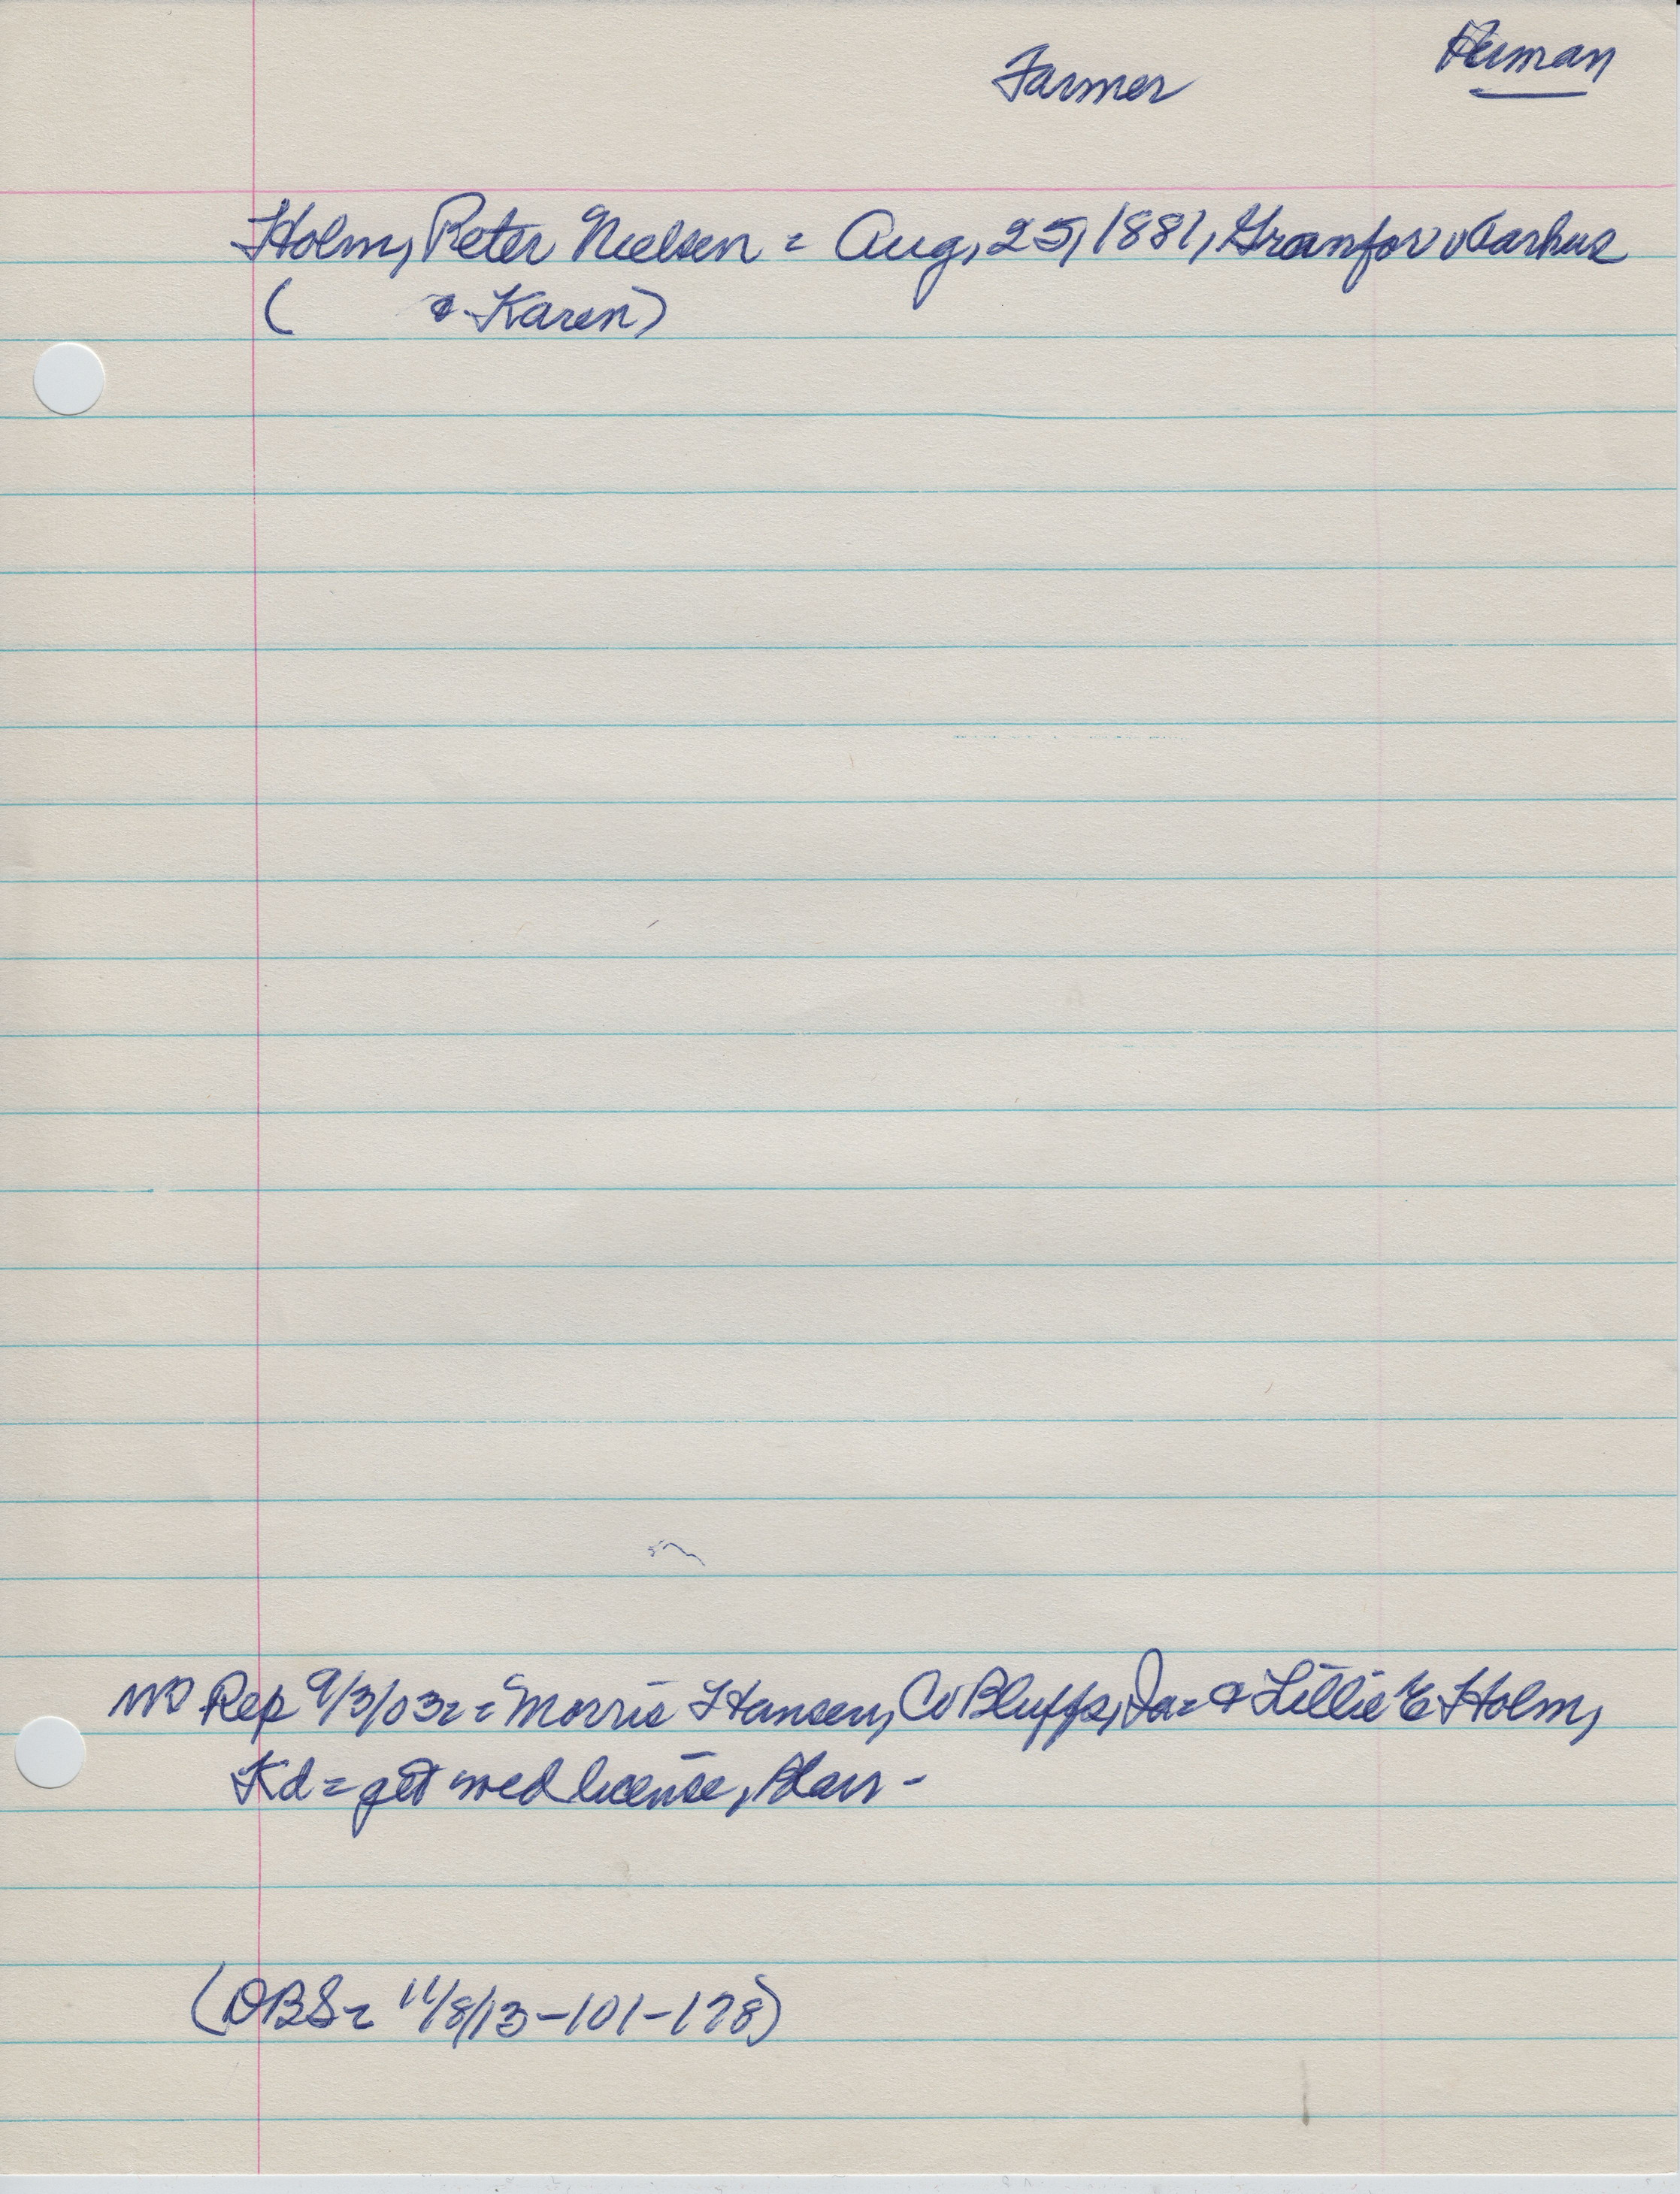 Farmer
Human
Holm, Peter Nielsen = Aug, 25, 1881, Granfor v Aarhus
( & Karen)
Rep 9/3/03 = Morris Hansen, Co Bluffs, Ia = & Lillie E Holm,
Kd = get wed license, Blair -
(DBS = 11/8/13-101-178)